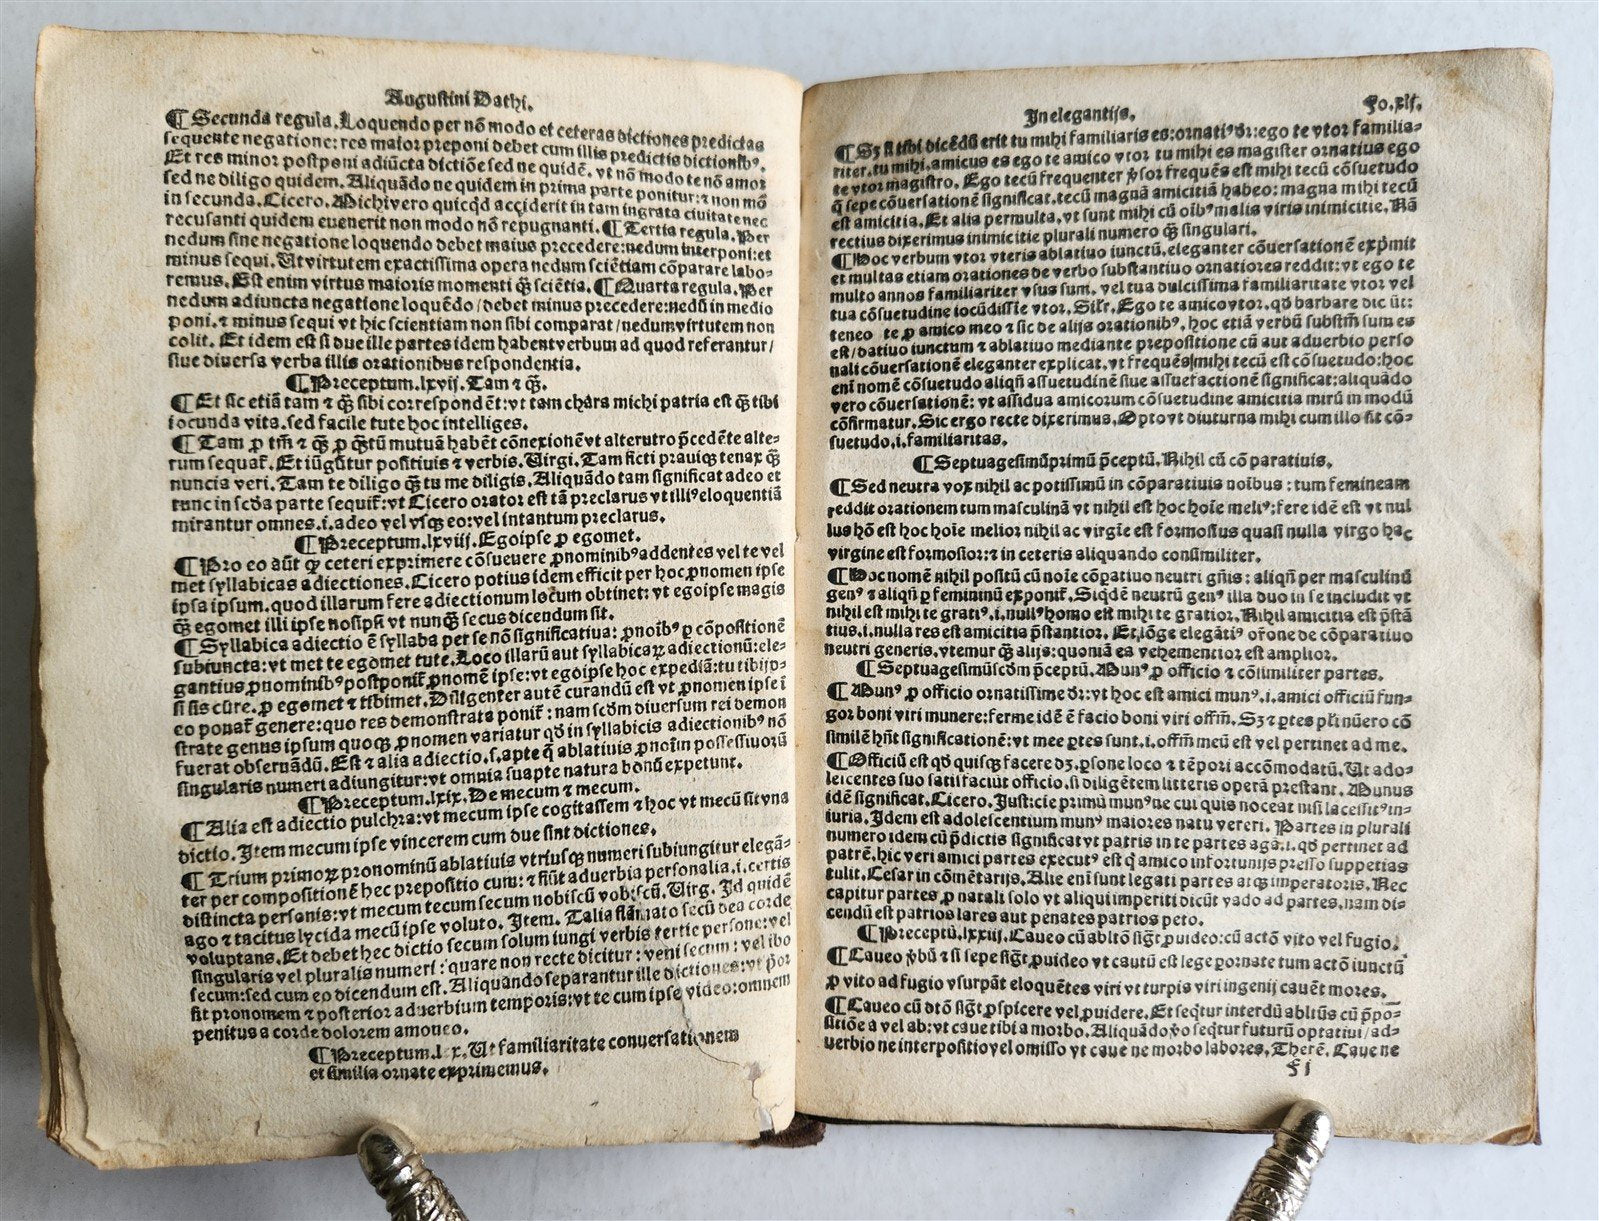 Augustini Dathi.
¶Secunda regula. Loquendo per nō modo et ceteras dictiones predictas
sequente negatione: res maior preponi debet cum illis predictis dictionibꝰ.
Et res minor postponi adiūcta dictiōe sed ne quidē. vt nō modo te nō amor
sed ne diligo quidem. Aliquādo ne quidem in prima parte ponitur: ⁊ non mō
in secunda. Cicero. Michi vero quicqd acciderit in tam ingrata ciuitate nec
recusanti quidem euenerit non modo nō repugnanti. ¶Tertia regula. Per
nedum sine negatione loquendo debet maius precedere: nedum interponi: et
minus sequi. Ut virtutem exactissima opera nedum sciētiam cōparare labo-
remus. Est enim virtus maioris momenti q̄ꝫ sciētia. ¶Quarta regula. Per
nedum adiuncta negatione loquēdo/debet minus precedere: nedū in medio
poni. ⁊ minus sequi vt hic scientiam non sibi comparat/nedum virtutem non
colit. Et idem est si due ille partes idem habent verbum ad quod referantur/
siue diuersa verba illis orationibus respondentia.
¶Preceptum. lxvij. Tam ⁊ q̄ꝫ.
¶Et sic etiā tam ⁊ q̄ꝫ sibi correspondēt: vt tam chara michi patria est q̄ꝫ tibi
iocunda vita. sed facile tute hoc intelliges.
¶Tam ꝓ tm̄ ⁊ q̄ꝫ ꝓ q̄ꝫtū mutuā habēt cōnexionē vt alterutro p̄cedēte alte-
rum sequat̄. Et iūgūtur positiuis ⁊ verbis. Virgi. Tam ficti prauiqꝫ tenax q̄ꝫ
nuncia veri. Tam te diligo q̄ꝫ tu me diligis. Aliquādo tam significat adeo et
tunc in scd̄a parte sequit̄: vt Cicero orator est tā preclarus vt illiꝰ eloquentiā
mirantur omnes. i. adeo vel vsqꝫ eo: vel intantum preclarus.
¶Preceptum. lxviij. Egoipse ꝓ egomet.
¶Pro eo aūt qꝫ ceteri exprimere cōsueuere ꝓnominibꝰ addentes vel te vel
met syllabicas adiectiones. Cicero potius idem efficit per hoc ꝓnomen ipse
ipsa ipsum. quod illarum fere adiectionum locum obtinet: vt egoipse magis
q̄ꝫ egomet illi ipse nosipsi vt nunq̄ꝫ secus dicendum sit.
¶Syllabica adiectio ē syllaba per se nō significatiua: ꝓnoībꝰ ꝑ cōpositionē
subiuncta: vt met te egomet tute. Loco illarū aut syllabicaꝝ adiectionū: ele-
gantius ꝓnominibꝰ postponit̄ ꝓnomē ipse: vt egoipse hoc expediā: tu tibiip-
si sis cure. ꝓ egomet ⁊ tibimet. Diligenter autē curandū est vt ꝓnomen ipse ī
eo ponat̄ genere: quo res demonstrata ponit̄: nam scd̄m diuersum rei demon
strate genus ipsum quoqꝫ ꝓnomen variatur qd̄ in syllabicis adiectionibꝰ nō
fuerat obseruādū. Est ⁊ alia adiectio. s. apte q̄ ablatiuis ꝓnoīm possessiuorū
singularis numeri adiungitur: vt omnia suapte natura bonū expetunt.
¶Preceptum. lxix. De mecum ⁊ mecum.
¶Alia est adiectio pulchra: vt mecum ipse cogitassem ⁊ hoc vt mecū sit vna
dictio. Item mecum ipse vincerem cum due sint dictiones.
¶Trium primoꝝ pronominū ablatiuis vtriusqꝫ numeri subiungitur elegā-
ter per compositionē hec prepositio cum: ⁊ fiūt aduerbia personalia. i. certis
distincta personis: vt mecum tecum secum nobiscū vobiscū. Virg. Id quidē
ago ⁊ tacitus lycida mecū ipse voluto. Item. Talia flāmato secū dea corde
voluptans. Et debet hec dictio secum solum iungi verbis tertie persone: vel
singularis vel pluralis numeri: quare non recte dicitur: veni secum: vel ibo
secum: sed cum eo dicendum est. Aliquando separantur ille dictiones: vt p̄or
sit pronomem ⁊ posterior aduerbium temporis: vt te cum ipse video: omnem
penitus a corde dolorem amoueo.
¶Preceptum. lxx. Ut familiaritate conuersationem
et similia ornate exprimemus.
In elegantijs. Fo. xlj.
¶Sꝫ si tibi dicēdū erit tu mihi familiaris es: ornatiꝰ dr̄: ego te vtor familia-
riter. tu mihi. amicus es ego te amico vtor tu mihi es magister ornatius ego
te vtor magistro. Ego tecū frequenter ꝟsor frequēs est mihi tecū cōsuetudo
q̄ sepe cōuersationē significat. tecū magnā amicitiā habeo: magna mihi tecū
est amicitia. Et alia permulta. vt sunt mihi cū oībꝰ malis viris inimicitie. Nā
rectius dixerimus inimicitie plurali numero q̄ꝫ singulari.
¶Hoc verbum vtor vteris ablatiuo iunctū. eleganter cōuersationē exp̄mit
et multas etiam orationes de verbo substantiuo ornatiores reddit: vt ego te
multo annos familiariter vsus sum. vel tua dulcissima familiaritate vtor vel
tua cōsuetudine iocūdissīe vtor. Silr̄. Ego te amico vtor. qd̄ barbare dic ūt:
teneo te ꝓ amico meo ⁊ sic de alijs orationibꝰ. hoc etiā verbū substm̄ sum es
est/datiuo iunctum ⁊ ablatiuo mediante prepositione cū aut aduerbio perso
nali cōuersationē eleganter explicat. vt frequēs mihi tecū est cōsuetudo: hoc
enī nomē cōsuetudo aliqn̄ assuetudinē siue assuefactionē significat: aliquādo
vero cōuersationē: vt assidua amicorum cōsuetudine amicitia mirū in modū
cōfirmatur. Sic ergo recte dixerimus. Opto vt diuturna mihi cum illo sit cō-
suetudo. i. familiaritas.
¶Septuagesimūprimū p̄ceptū. Nihil cū cō paratiuis.
¶Sed neutra vox nihil ac potissimū in cōparatiuis noībus: tum femineam
reddit orationem tum masculinā vt nihil est hoc hoīe meliꝰ: fere idē est vt nul
lus hō est hoc hoīe melior nihil ac virgīe est formosius quasi nulla virgo hac
virgine est formosior: ⁊ in ceteris aliquando consimiliter.
¶Hoc nomē nihil positū cū noīe cōpatiuo neutri gn̄is: aliqn̄ per masculinū
genꝰ ⁊ aliqn̄ ꝑ femininū exponit̄. Siqdē neutrū genꝰ illa duo in se includit vt
nihil est mihi te gratiꝰ. i. nullꝰ homo est mihi te gratior. Nihil amicitia est p̄stā
tius. i. nulla res est amicitia p̄stantior. Et lōge elegātiꝰ or̄one de cōparatiuo
neutri generis. vtemur q̄ꝫ alijs: quoniā ea vehementior est amplior.
¶Septuagesimūscd̄m p̄ceptū. Munꝰ ꝓ officio ⁊ cōsimiliter partes.
¶Munꝰ ꝓ officio ornatissime dr̄: vt hoc est amici munꝰ. i. amici officiū fun-
gor boni viri munere: ferme idē ē facio boni viri offm̄. Sꝫ ⁊ ꝑtes pl̄ri nūero cō
similē hn̄t significationē: vt mee ꝑtes sunt. i. offm̄ meū est vel pertinet ad me.
¶Officiū est qd̄ quisqꝫ facere dꝫ. ꝑsone loco ⁊ tēpori accōmodatū. Ut ado-
lescentes suo satis faciūt officio. si diligētem litteris operā prestant. Munus
idē significat. Cicero. Justicie primū munꝰ ne cui quis noceat nisi lacessitꝰ in-
iuria. Idem est adolescentium munꝰ maiores natu vereri. Partes in plurali
numero idem cū p̄dictis significat vt patris in te partes agā. i. qd̄ pertinet ad
patrē. hic veri amici partes executꝰ est q̄ amico infortunijs presso suppetias
tulit. Cesar in cōmētarijs. Alie enī sunt legati partes atqꝫ imperatoris. Nec
capitur partes ꝓ natali solo vt aliqui imperiti dicūt vado ad partes. nam di-
cendū est patrios lares aut penates patrios peto.
¶Preceptū. lxxiij. Caueo cū abltō sigt̄ ꝓuideo: cū actō vito vel fugio.
¶Caueo ꝟbū ⁊ si sepe sigt̄ ꝓuideo vt cautū est lege ꝑornate tum actō iunctū
ꝓ vito ad fugio vsurpāt eloquētes viri vt turpis viri ingenij cauēt mores.
¶Caueo cū dtō sigt̄ ꝑspicere vel ꝓuidere. Et seqtur interdū abltīus cū p̄po-
sitiōe a vel ab: vt caue tibi a morbo. Aliquādo ꝟo seqtur futurū optatiui/ad-
uerbio ne interposito vel omisso vt caue ne morbo labores. Therē. Caue ne
f i